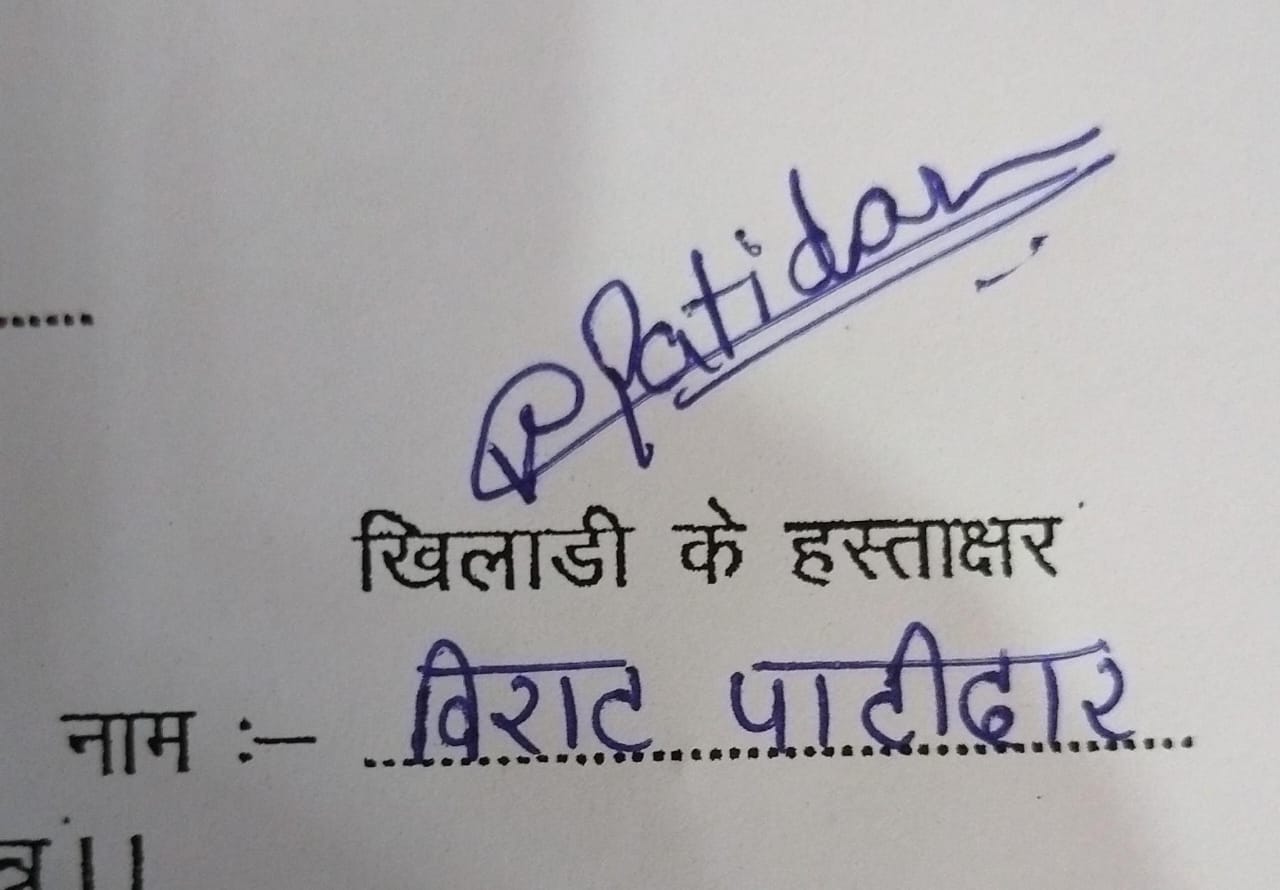 Patidar
खिलाडी के हस्ताक्षर
नाम :– विराट पाटीदार